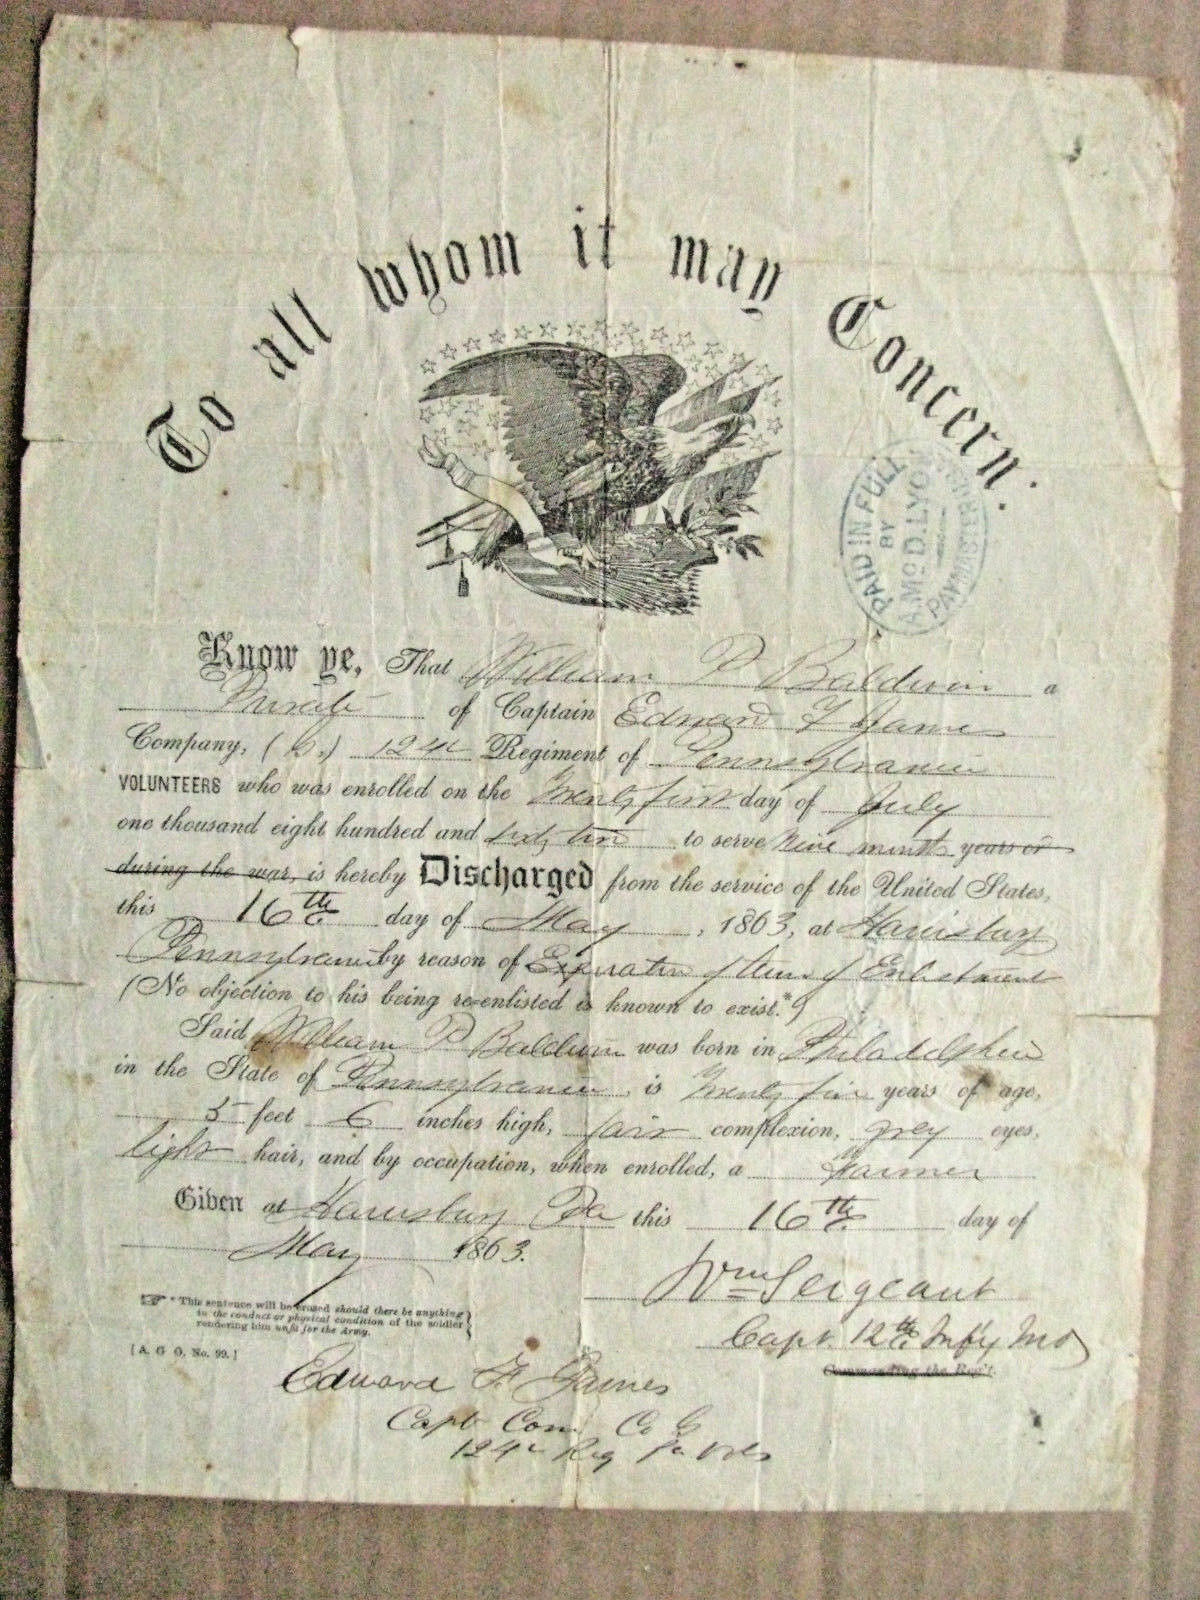 To all whom it may Concern:
PAID IN FULL
BY
A. McD. LYON
PAYMASTER
Know ye, That William P Baldwin a
Private of Captain Edward F James
Company, (G.) 124th Regiment of Pennsylvania
VOLUNTEERS who was enrolled on the Twenty first day of July
one thousand eight hundred and sixty two to serve nine month years or
during the war, is hereby Discharged from the service of the United States,
this 16th day of May, 1863, at Harrisburg
Pennsylvania by reason of Expiration of Term of Enlistment
(No objection to his being re-enlisted is known to exist.*)
Said William P Baldwin was born in Philadelphia
in the State of Pennsylvania, is Twenty five years of age,
5 feet 6 inches high, fair complexion, grey eyes,
light hair, and by occupation, when enrolled, a Farmer
Given at Harrisburg Pa this 16th day of
May 1863.
Wm Sergeant
Capt. 12th Infy MO
Commanding the Reg't.
* This sentence will be erased should there be anything
in the conduct or physical condition of the soldier
rendering him unfit for the Army.
[A. G. O. No. 99.]
Edward F. James
Capt Com Co G
124th Reg Pa Vols